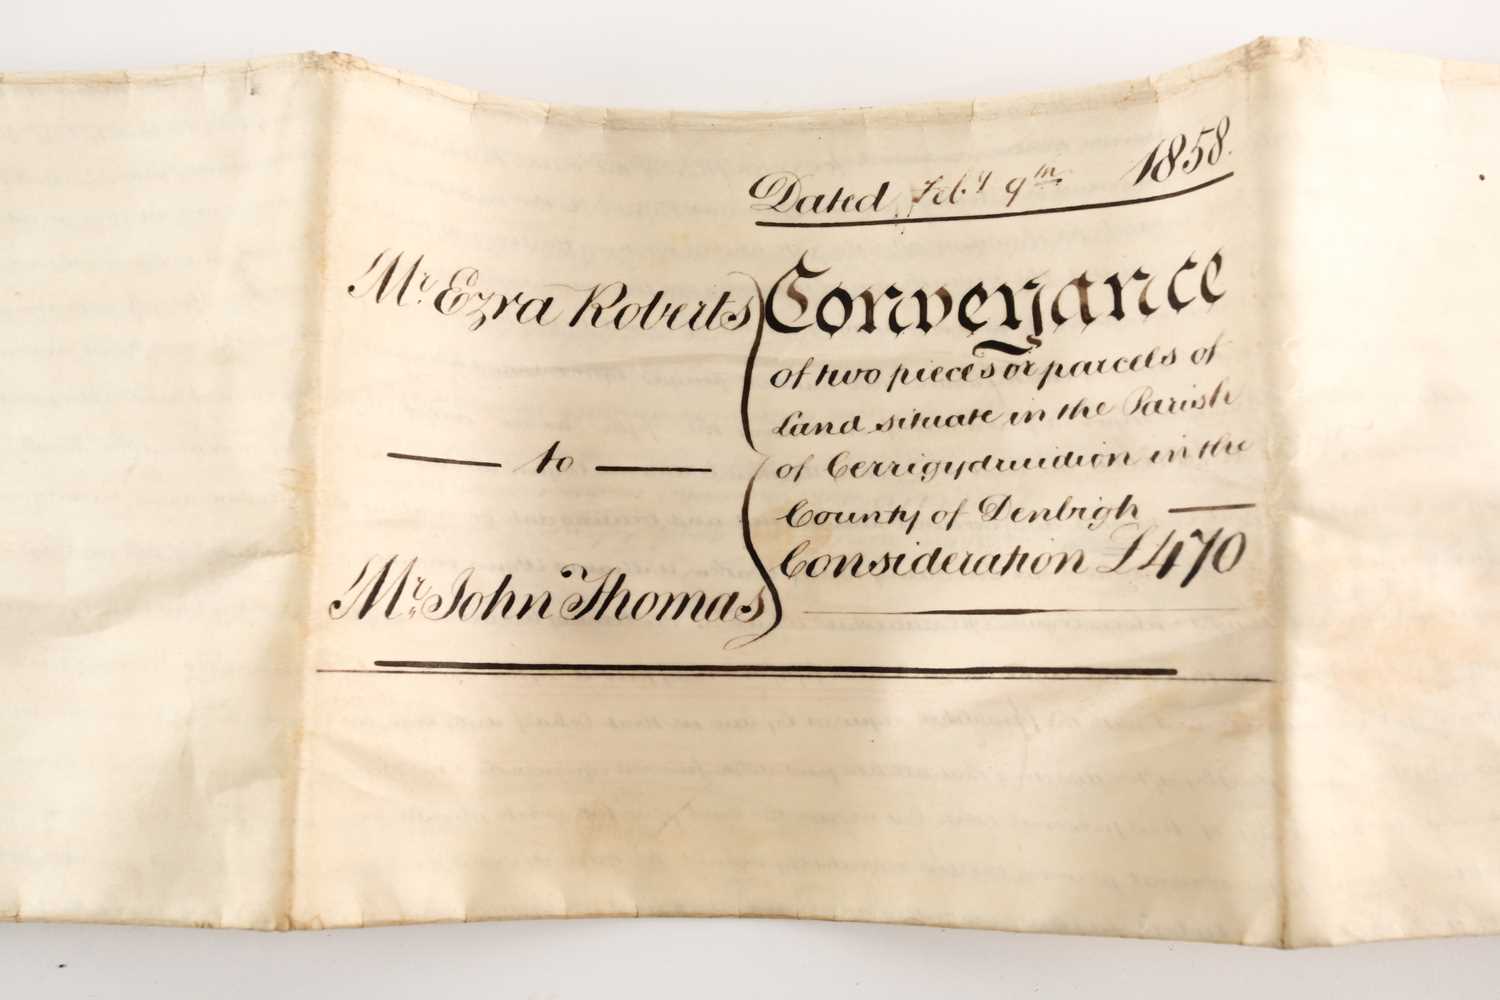 Dated Feb.y 9th 1858.
Mr. Ezra Roberts
— to —
Mr. John Thomas
Conveyance
of two pieces or parcels of
Land situate in the Parish
of Cerrigydruidion in the
County of Denbigh —
Consideration £470